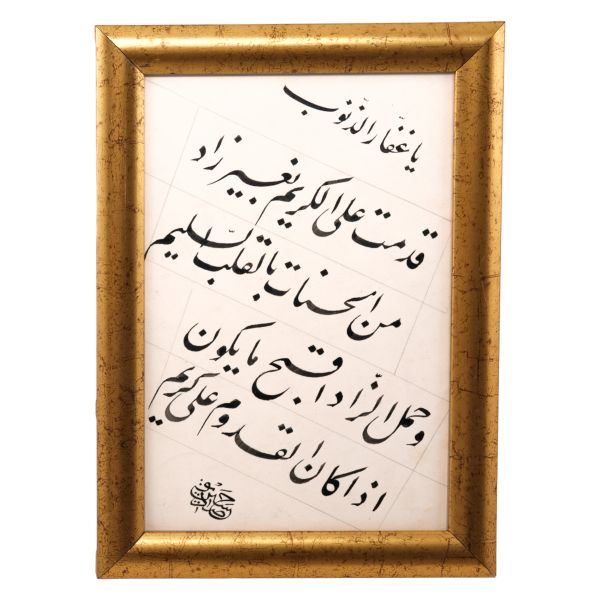 يا غفّار الذنوب
قدمت على الكريم بغير زاد
من الحسنات بالقلب السليم
وحمل الزّاد اقبح ما يكون
اذا كان القدوم على كريم